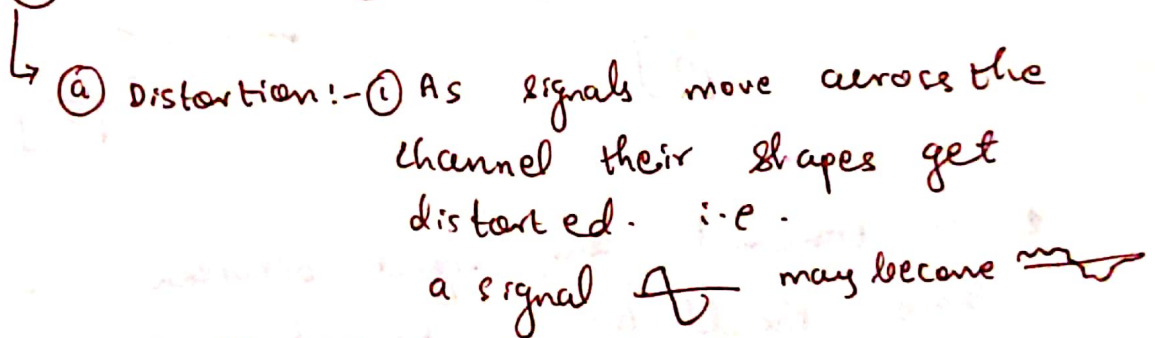 ⓐ Distortion:- ① As signals move across the
channel their shapes get
distorted. i.e.
a signal may become